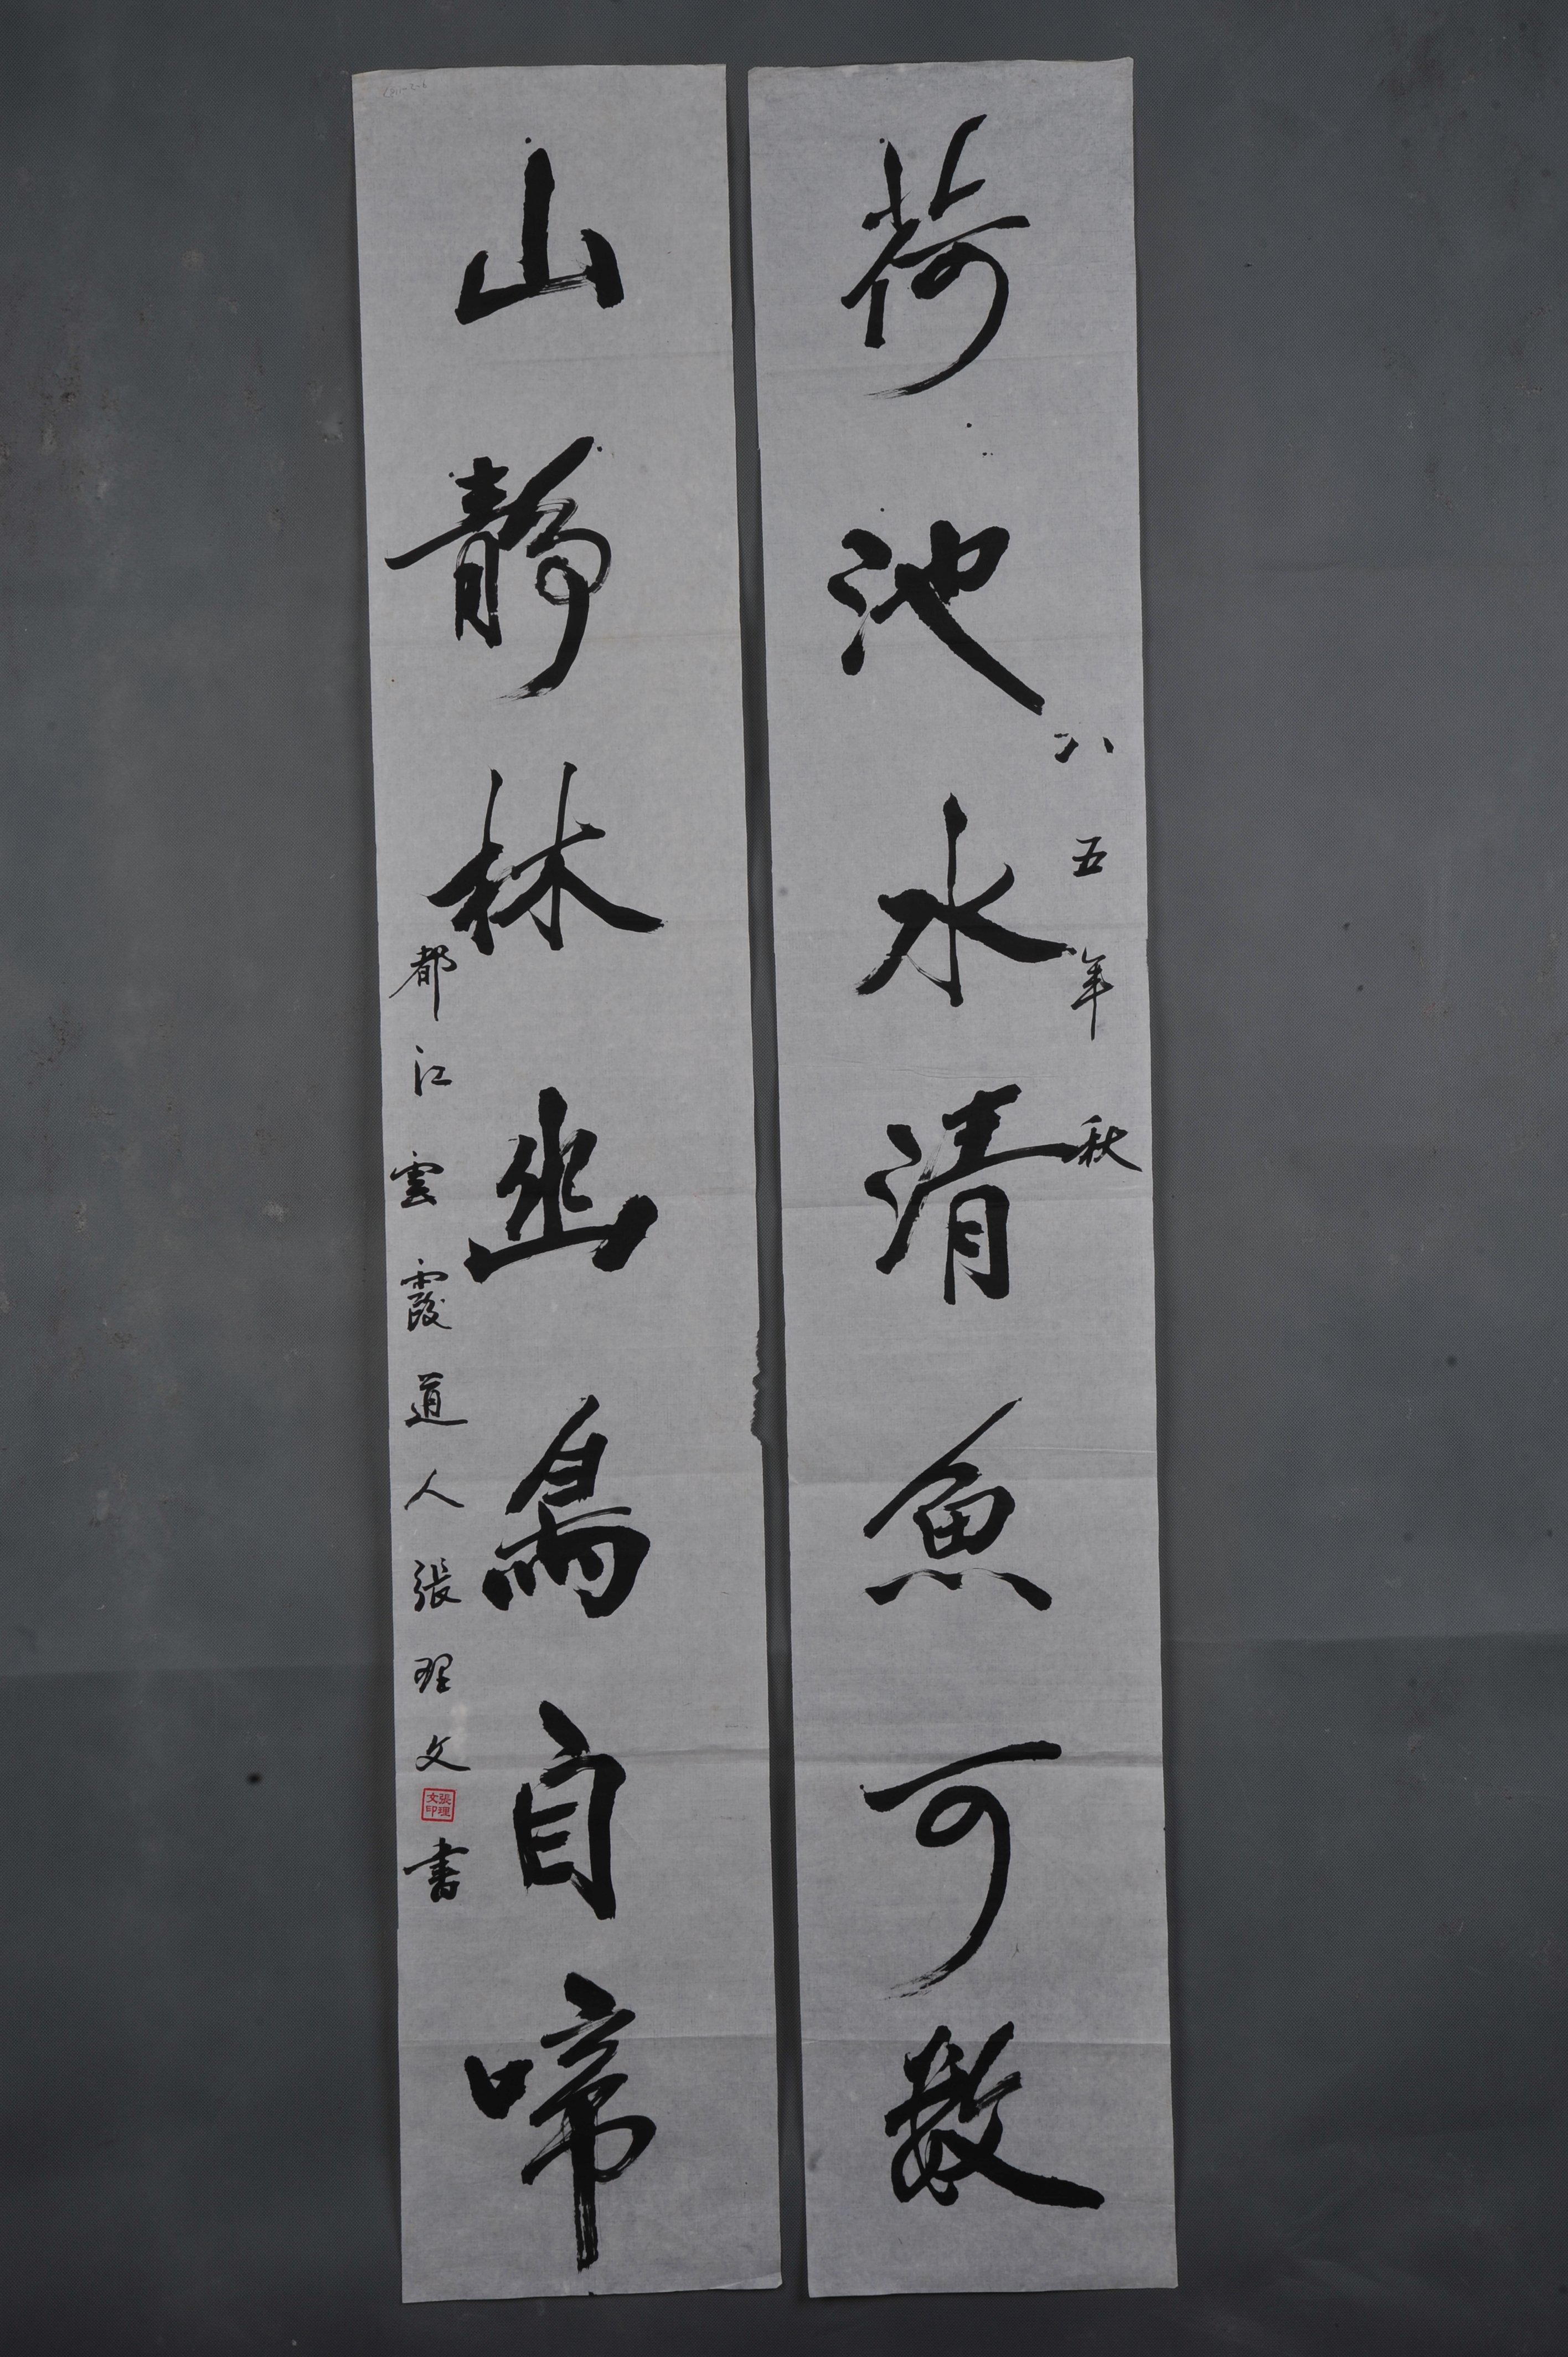 荷池水清魚可数
八五年秋
山靜林幽鳥自啼
都江雲霞道人張理文書
張理文印